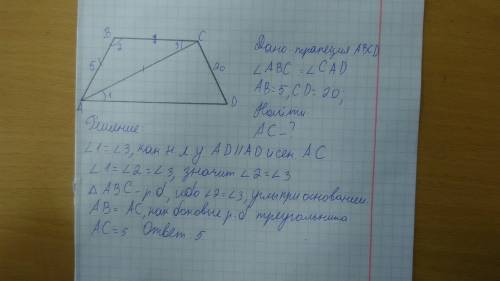 B
2
3
C
5
20
1
A
D
Дано: трапеция ABCD
∠ABC = ∠CAD
AB=5, CD=20;
Найти
AC-?
Решение:
∠1=∠3, как н.л.у AD||AD и сек AC
∠1=∠2=∠3, значит ∠2=∠3
△ABC-р.б, ибо ∠2=∠3, углы при основании.
AB= AC, как боковые р.б треугольника
AC=5 Ответ 5